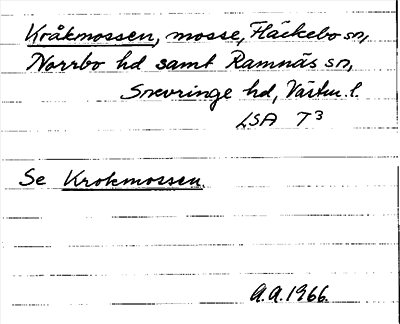 Kråkmossen, mosse, Fläckebo sn,
Norrbo hd samt Ramnäs sn,
Snevringe hd, Västm. l.
LSA T3
Se Krokmossen
A.A. 1966.